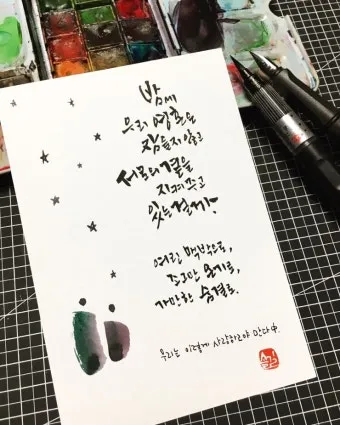 밤에
우리 영혼은
잠들지 않고
서로의 곁을
지켜주고
있는걸까?
여린 맥박으로,
조그만 온기로,
가만한 숨결로.
우리는 이렇게 사랑하고야 만다 中.